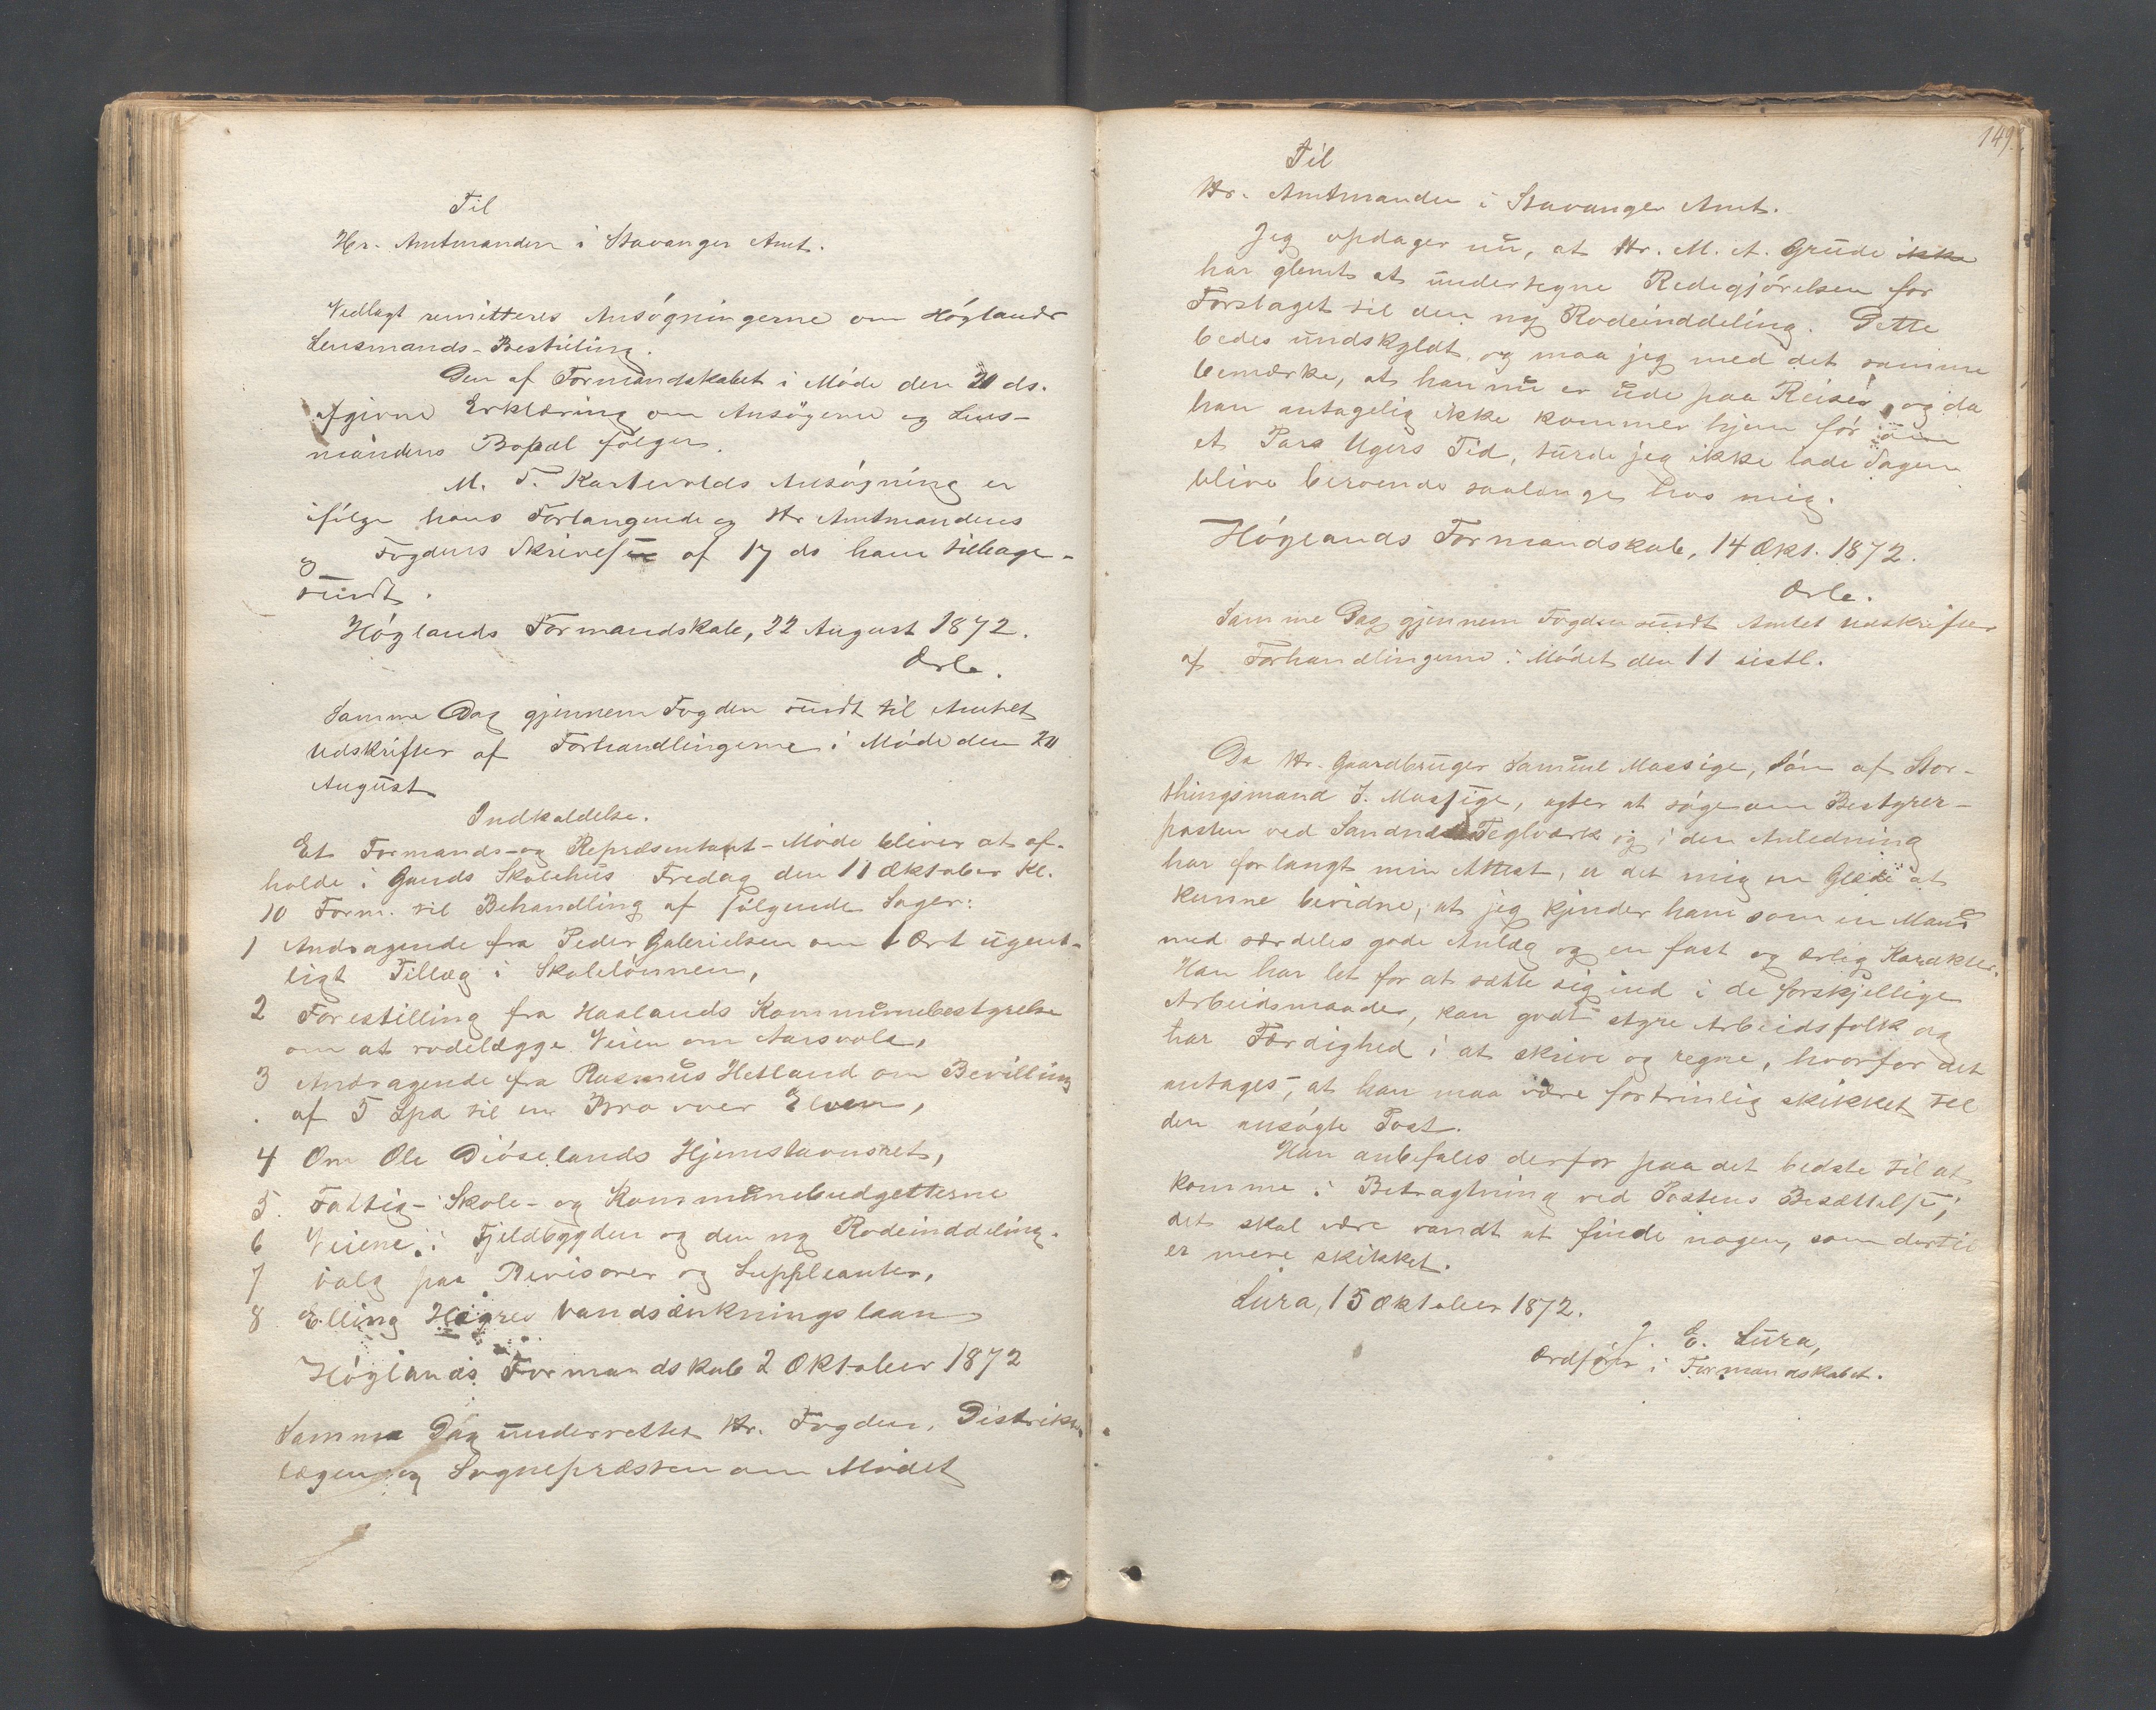 Til
Hr. Amtmanden i Stavanger Amt.
Vedlagt remitteres Ansøgningerne om Høglands
Lensmands-Bestilling.
Den af Formandskabet i Møde den 20 ds.
afgivne Erklæring om Ansøgerne og Lens-
mandens Bopæl følger.
M. T. Kartevolds Ansøgning er
ifølge hans Forlangende og Hr Amtmandens
og Fogdens Skrivelse af 17 ds ham tilbage-
sendt.
Høglands Formandskab, 22 August 1872.
Ordf.
Samme Dag gjennem Fogden sendt til Amtet
Udskrifter af Forhandlingerne i Møde den 20
August
Indkaldelse.
Et Formands- og Repræsentant-Møde bliver at af-
holde i Gands Skolehus Fredag den 11 Oktober Kl.
10 Form. til Behandling af følgende Sager:
1 Andragende fra Peder Gabrielsen om 1 Ort ugent-
ligt Tillæg i Skolelønnen,
2 Forestilling fra Haalands Kommunebestyrelse
om at rodelægge Veien om Aarsvold,
3 Andragende fra Rasmus Hetland om Bevilling
af 5 Spd til en Bro over Elven,
4 Om Ole Diøselands Hjemstavnsret,
5. Fattig- Skole- og Kommunebudgetterne
6 Veiene i Fjeldbygden og den ny Rodeinddeling.
7 Valg paa Revisorer og Suppleanter,
8 Elling Høgres Vandsænkningslaan
Høglands Formandskab 2 Oktober 1872
Samme Dag underrettet Hr. Fogden, Distrikts
lægen og Sognepræsten om Mødet
149
Til
Hr. Amtmanden i Stavanger Amt.
Jeg opdager nu, at Hr. M. A. Grude ikke
har glemt at undertegne Redegjørelsen for
Forslaget til den ny Rodeinddeling. Dette
bedes undskyldt og maa jeg med det samme
bemærke, at han nu er ude paa Reiser, og da
han antagelig ikke kommer hjem før om
et Pars Ugers Tid, turde jeg ikke lade Sagen
blive beroende saalænge hos mig.
Høglands Formandskab, 14 Okt. 1872.
Ordf.
Samme Dag gjennem Fogden sendt Amtet Udskrifter
af Forhandlingerne i Mødet den 11 sistl.
Da Hr. Gaardbruger Samuel Massige, Søn af Stor-
thingsmand S. Massige, agter at søge om Bestyrer-
posten ved Sandnæs Teglværk og i den Anledning
har forlangt min Attest, er det mig en Glæde at
kunne bevidne, at jeg kjender ham som en Mand
med særdeles gode Anlæg og en fast og ærlig Karakter.
Han har let for at sætte sig ind i de forskjellige
Arbeidsmaader, kan godt styre Arbeidsfolk og
har Færdighed i at skrive og regne, hvorfor det
antages, at han maa være fortrinlig skikket til
den ansøgte Post.
Han anbefales derfor paa det bedste til at
komme i Betragtning ved Postens Besættelse;
det skal være vandt at finde nogen, som dertil
er mere skikket.
Lura, 15 Oktober 1872.
J. E. Lura,
Ordfører i Formandskabet.